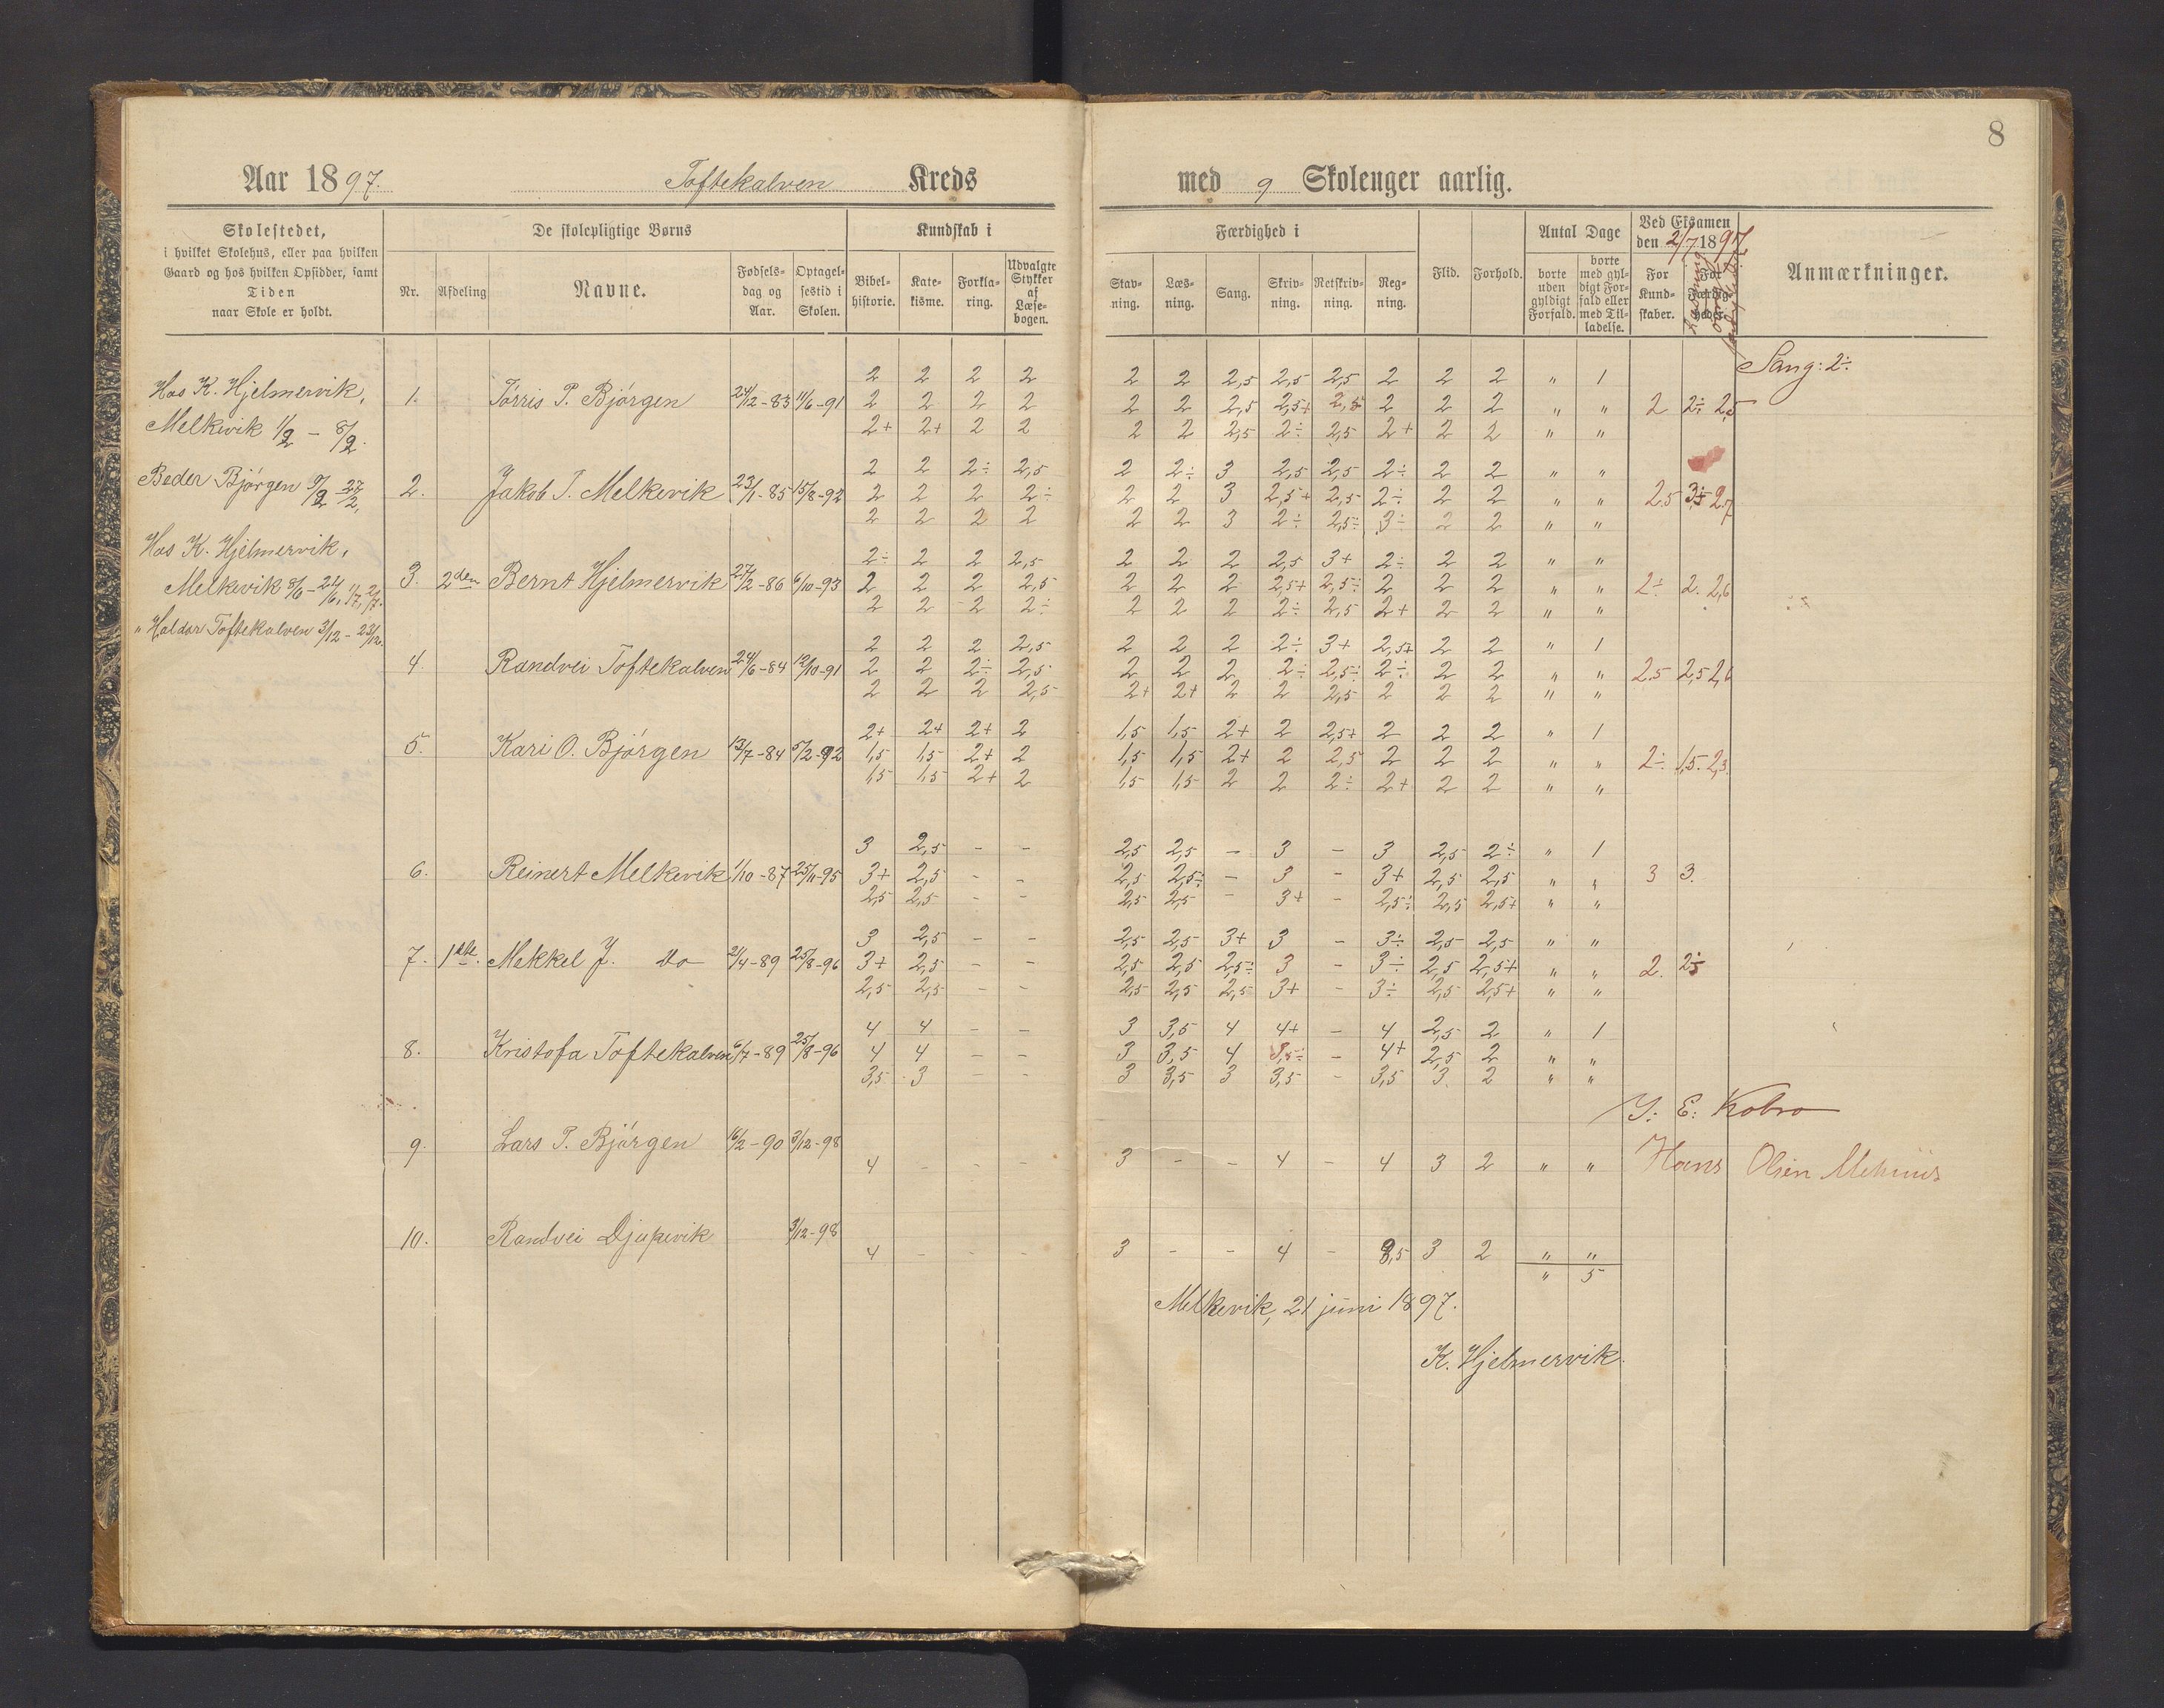 8
Aar 1897. Toftekalven Kreds med 9 Skoleuger aarlig.
Skolestedet,
i hvilket Skolehus, eller paa hvilken
Gaard og hos hvilken Opsidder, samt
Tiden
naar Skole er holdt.
De skolepligtige Børns
Nr. Afdeling Navne. Fødselsdag og Aar. Optagelsestid i Skolen.
Kundskab i
Bibelhistorie. Katekisme. Forklaring. Udvalgte Stykker af Læsebogen.
Færdighed i
Stavning. Læsning. Sang. Skrivning. Retskrivning. Regning.
Flid. Forhold.
Antal Dage
borte uden gyldigt Forfald. borte med gyldigt Forfald eller med Tilladelse.
Ved Eksamen
den 2/7 1897
For Kundskaber. For Færdigheder.
Anmærkninger.
Hos K. Hjelmervik,
Melkevik 1/2 – 8/2.
Peder Bjørgen 9/2 – 27/2,
Hos K. Hjelmervik,
Melkevik 8/6 – 24/6, 1/7, 2/7.
" Haldor Toftekalven 3/12 – 23/12.
2 2 2 2 2 2 2,5 2,5 2,5 2 2 2 " 1 Sang: 2÷
1. Tørris P. Bjørgen 24/12-83 11/6-91 2 2 2 2 2 2 2,5 2,5+ 2,5 2 2 2 " " 2 2÷ 2,5
2+ 2+ 2 2 2 2 2,5 2÷ 2,5 2+ 2 2 " "
2 2 2÷ 2,5 2 2÷ 3 2,5 2,5 2÷ 2 2 " "
2. Jakob T. Melkevik 23/1-85 15/8-92 2 2 2 2÷ 2 2 3 2,5+ 2,5 2÷ 2 2 " " 2.5 3+ 2.7
2 2 2 2 2 2 3 2÷ 2,5÷ 3÷ 2 2 " "
2÷ 2 2 2,5 2 2 2 2,5 3+ 2÷ 2 2 " "
3. 2den Bernt Hjelmervik 27/2-86 6/10-93 2 2 2 2,5 2 2 2 2,5+ 2,5÷ 2 2 2 " " 2÷ 2. 2,6
2 2 2 2÷ 2 2 2 2÷ 2,5 2+ 2 2 " "
2 2 2 2,5 2 2 2 2÷ 3+ 2,5+ 2 2 " 1
4. Randvei Toftekalven 24/6-84 12/10-91 2 2 2÷ 2,5 2 2 2 2÷ 2,5÷ 2÷ 2 2 " " 2.5 2,5 2,6
2 2 2 2,5 2+ 2+ 2 2 2,5 2 2 2 " "
2+ 2+ 2+ 2 1,5 1,5 2+ 2 2,5+ 2 2 2 " 1
5. Kari O. Bjørgen 13/7-84 5/2-92 1,5 1,5 2+ 2 1,5 1,5 2+ 2 2,5 2 2 2 " " 2÷ 1,5. 2,3.
1,5 1,5 2+ 2 1,5 1,5 2 2 2÷ 2+ 2 2 " "
3 2,5 – – 2,5 2,5 – 3 – 3 2,5 2÷ " 1
6. Reinert Melkevik 1/10-87 25/11-95 3+ 2,5 – – 2,5 2,5÷ – 3 – 3+ 2,5 2,5 " " 3 3.
2,5 2,5 – – 2,5 2,5 – 3+ – 2,5÷ 2,5 2,5+ " "
3 2,5 – – 2,5 2,5 3+ 3 – 3÷ 2,5 2,5 " "
7. 1ste. Mekkel J. do 21/4-89 25/8-96 3+ 2,5 – – 2,5 2,5 2,5÷ 3 – 3÷ 2,5 2,5+ " " 2.
2,5 2,5 – – 2,5 2,5 2,5 3+ – 3÷ 2,5 2,5+ " "
4 4 – – 3 3,5 4 4+ – 4 2,5 2 " 1
8. Kristofa Toftekalven 6/7-89 25/8-96 4 4 – – 3 3,5 4 3,5÷ – 4+ 2,5 2 " "
3,5 3 – – 3 3,5 3 3,5 – 3,5 3 2 " "
J. E. Kobro
9. Lars P. Bjørgen 16/2-90 3/12-98
4 – – – 3 – – 4 – 4 3 2 " " Hans Olsen
10. Randvei Djupevik 3/12-98
4 – – – 3 – – 4 – 3,5 3 2 " "
" 5
Melkevik, 21 juni 1897.
K. Hjelmervik.